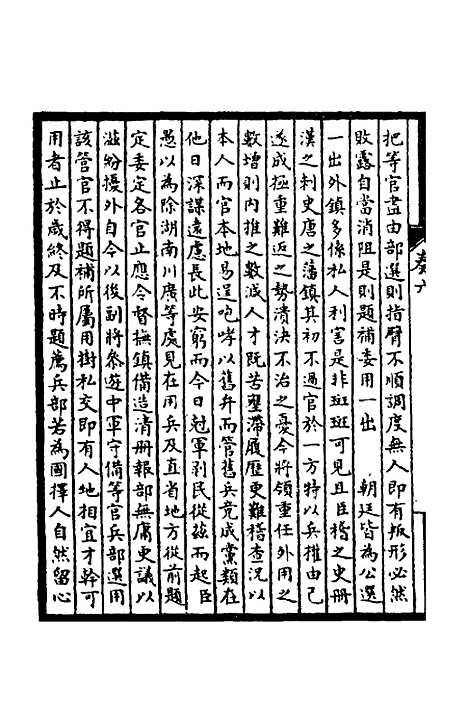 把等官盡由部選則指臂不順調度無人即有叛形必然
敗露自當消阻是則題補委用一出　朝廷皆為公選
一出外鎮多係私人利害是非斑斑可見且臣稽之史冊
漢之刺史唐之藩鎮其初不過官於一方特以兵權由己
遂成極重難返之勢潰決不治之憂今將領重任外用之
數增則内推之數減人才既苦壅滯履歷更難稽查況以
本人而官本地易逞咆哮以舊弁而管舊兵竟成黨類在
他日深謀遠慮長此安窮而今日尅軍剥民從兹而起臣
愚以為除湖南川廣等處見在用兵及直省地方從前題
定委定各官止應令督撫鎮備造清冊報部無庸更議以
滋紛擾外自今以後副將叅遊中軍守備等官兵部選用
該管官不得題補所屬用樹私交即有人地相宜才幹可
用者止於歲終及不時題薦兵部若為國擇人自然留心
奏　六